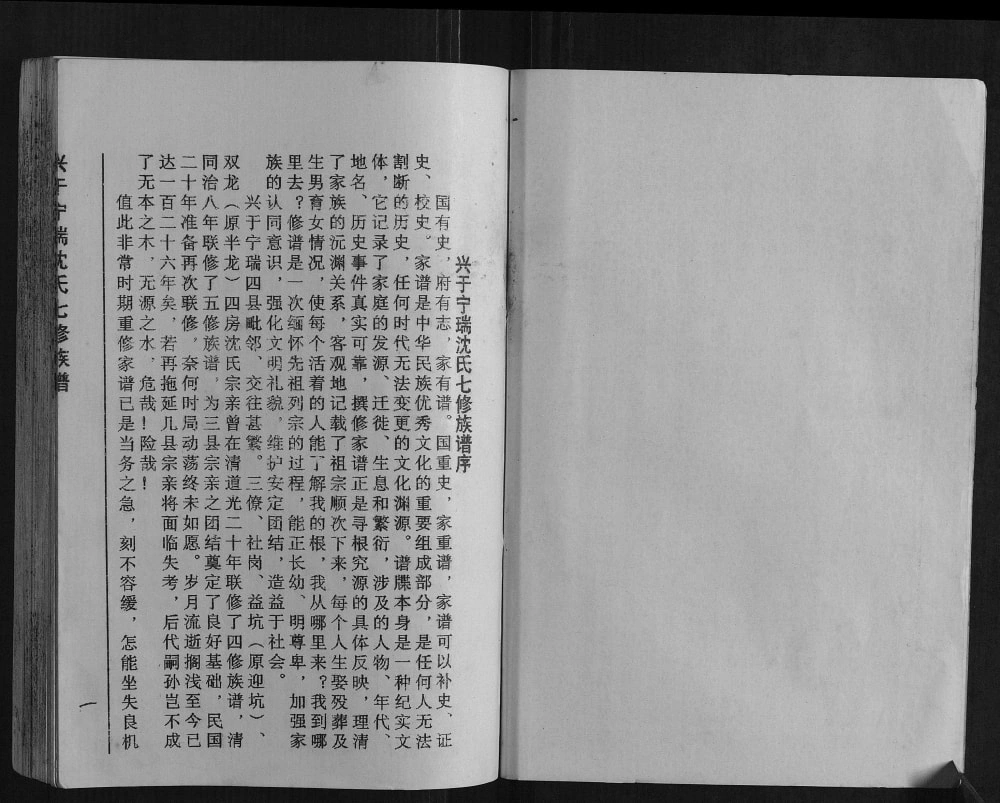 兴于宁瑞沈氏七修族谱序
国有史，府有志，家有谱。国重史，家重谱，家谱可以补史、证
史、校史。家谱是中华民族优秀文化的重要组成部分，是任何人无法
割断的历史，任何时代无法变更的文化渊源。谱牒本身是一种纪实文
体，它记录了家庭的发源、迁徙、生息和繁衍，涉及的人物、年代、
地名、历史事件真实可靠，撰修家谱正是寻根究源的具体反映，理清
了家族的沅渊关系，客观地记载了祖宗顺次下来，每个人生娶殁葬及
生男育女情况，使每个活着的人能了解我的根，我从哪里来？我到哪
里去？修谱是一次缅怀先祖列宗的过程，能正长幼、明尊卑，加强家
族的认同意识，强化文明礼貌，维护安定团结，造益于社会。
兴于宁瑞四县毗邻、交往甚繁。三僚、社岗、益坑（原迎坑）、
双龙（原半龙）四房沈氏宗亲曾在清道光二十年联修了四修族谱，清
同治八年联修了五修族谱，为三县宗亲之团结奠定了良好基础，民国
二十年准备再次联修，奈何时局动荡终未如愿。岁月流逝搁浅至今已
达一百二十六年矣，若再拖延几县宗亲将面临失考，后代嗣孙岂不成
了无本之木，无源之水，危哉！险哉！
值此非常时期重修家谱已是当务之急，刻不容缓，怎能坐失良机
兴于宁瑞沈氏七修族谱
一